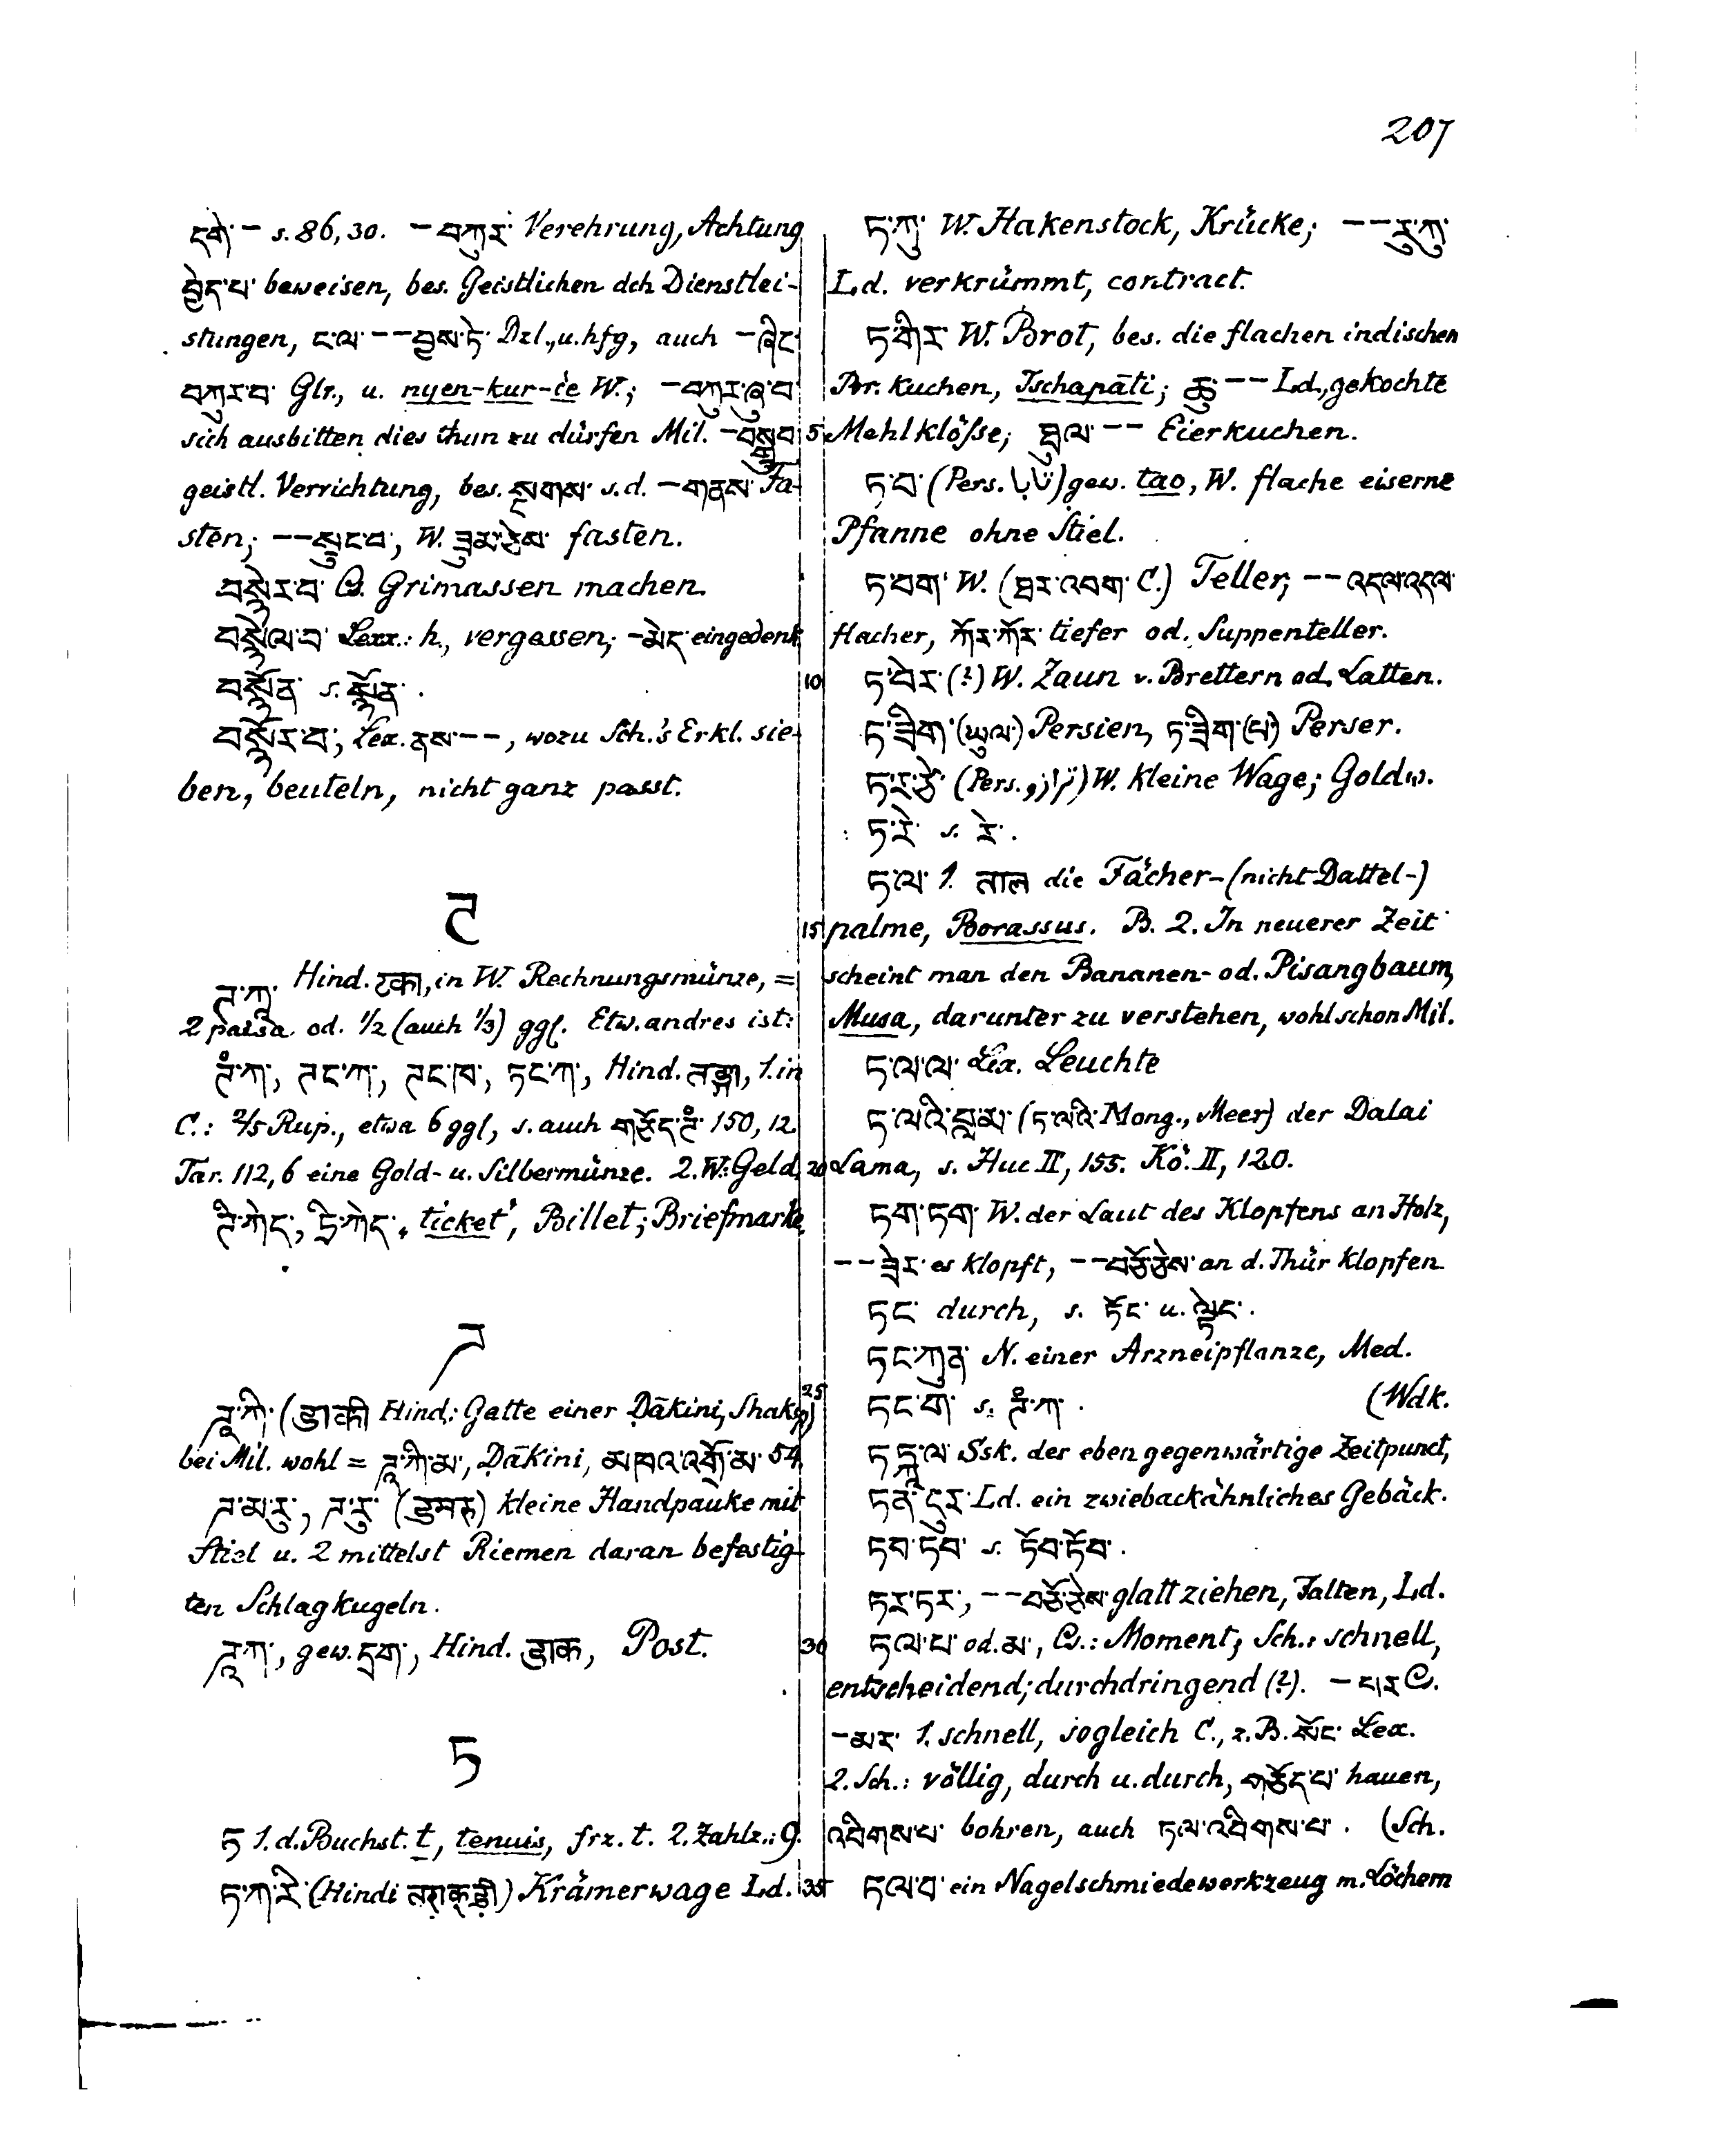 207
དགེ་ – s. 86, 30. – བཀུར་ Verehrung, Achtung
བྱེད་པ་ beweisen, bes. Geistlichen dch Dienstlei-
stungen, ང་ལ་ – – བྱས་ཏེ་ Dzl., u. hfg, auch – ཞིང་
བཀུར་བ་ Glr., u. nyen-kur-če W.; – བཀུར་ཞུ་བ་
sich ausbitten dies thun zu dürfen Mil. –
geistl. Verrichtung, bes. སྔགས་ s. d. – གནས་ Fa-
sten; – – སྲུང་བ་, W. ཟུམ་ཅེས་ fasten.
བསྙེར་བ་ Cs. Grimassen machen.
བསྙེལ་བ་ Lexx.: h., vergessen; – མེད་ eingedenk
བསྙོན་ s. སྙོན་.
བསྙོར་བ་, Lex. ནས་ – –, wozu Sch.'s Erkl. sie-
ben, beuteln, nicht ganz passt.
ཊ
ཊ་ཀཱ་ Hind. टका, in W. Rechnungsmünze, =
2 paisa od. 1/2 (auch 1/3) ggl. Etw. andres ist:
ཊཾ་ཀ་, ཊང་ཀ་, ཊང་ཁ་, ཏང་ཀ་, Hind. तङ्का, 1. in
C.: 2/5 Rup., etwa 6 ggl, s. auch གཙོད་ཊཾ་ 150, 12.
Tar. 112, 6 eine Gold- u. Silbermünze. 2. W.: Geld.
ཊི་ཀེད་, ཏྲི་ཀེད་, „ticket", Billet; Briefmarke.
ཌ
ཌཱ་ཀི་ (डाकी Hind.: Gatte einer Ḍākini, Shaksp)
bei Mil. wohl = ཌཱ་ཀི་མ་, Ḍākini, མཁའ་འགྲོ་མ་ 54
ཌ་མ་རུ་, ཌ་རུ་ (डमरु) kleine Handpauke mit
Stiel u. 2 mittelst Riemen daran befestig-
ten Schlagkugeln.
ཌཱ་ཀ་, gew. དྲག་, Hind. डाक, Post.
ཏ
ཏ 1. d. Buchst. t, tenuis, frz. t. 2. Zahlz.: 9.
ཏ་ཀ་རི་ (Hindi) Krämerwage Ld.
ཏ་ཀུ་ W. Hakenstock, Krücke; – – རུ་ཀུ་
Ld. verkrümmt, contract.
ཏ་གིར་ W. Brot, bes. die flachen indischen
Br. Kuchen, Tschapāti; ཆུ་ – – Ld., gekochte
5 Mehlklösse; ཐུལ་ – – Eierkuchen.
ཏ་བ་ (Pers.) gew. tao, W. flache eiserne
Pfanne ohne Stiel.
ཏ་བག་ W. (ཐར་འབག་ C.) Teller; – – འདལ་འདལ་
flacher, ཀོར་ཀོར་ tiefer od. Suppenteller.
10 ཏ་བེར་ (?) W. Zaun v. Brettern od. Latten.
ཏ་ཟིག་ (ཡུལ་) Persien, ཏ་ཟིག་(པ་) Perser.
ཏ་རཱ་ཙེ་ (Pers. ترازو) W. kleine Wage; Goldw.
ཏ་རེ་ s. རེ་.
ཏ་ལ་ 1. ताल die Fächer-(nicht Dattel-)
15 palme, Borassus. B. 2. In neuerer Zeit
scheint man den Bananen- od. Pisangbaum,
Musa, darunter zu verstehen, wohl schon Mil.
ཏ་ལ་ལ་ Lex. Leuchte
ཏ་ལའི་བླ་མ་ (ཏ་ལའི་ Mong., Meer) der Dalai
20 Lama, s. Huc II, 155. Kö. II, 120.
ཏག་ཏག་ W. der Laut des Klopfens an Holz,
– – ཟེར་ es klopft, – – བཙོ་ཅེས་ an d. Thür klopfen
ཏང་ durch, s. ཏོང་ u. ལྟེང་.
ཏང་ཀུན་ N. einer Arzneipflanze, Med.
25 ཏང་ག་ s. ཊཾ་ཀ་. (Wdk.
ཏཏྐཱ་ལ་ Ssk. der eben gegenwärtige Zeitpunct,
ཏན་དུར་ Ld. ein zwiebackähnliches Gebäck.
ཏབ་ཏོབ་ s. ཏོབ་ཏོབ་.
ཏར་ཏར་, – – བཙོ་ཅེས་ glatt ziehen, Falten, Ld.
30 ཏལ་པ་ od. མ་, Cs.: Moment; Sch.: schnell,
entscheidend; durchdringend (?). – པར C.
– མར་ 1. schnell, sogleich C., z. B. སོང་ Lex.
2. Sch.: völlig, durch u. durch, གཙོད་པ་ hauen,
འབིགས་པ་ bohren, auch ཏལ་འབིགས་པ་. (Sch.
35 ཏལ་བ་ ein Nagelschmiedewerkzeug m. Löchern